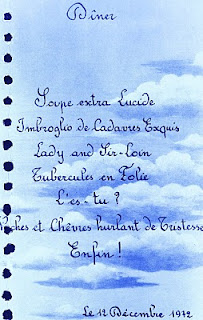 Dîner
Soupe extra Lucide
Imbroglio de Cadavres Exquis
Lady and Sir-Loin
Tubercules en Folie
L'es-tu ?
et Chèvres hurlant de Tristesse
Enfin !
Le 12 Décembre 1972